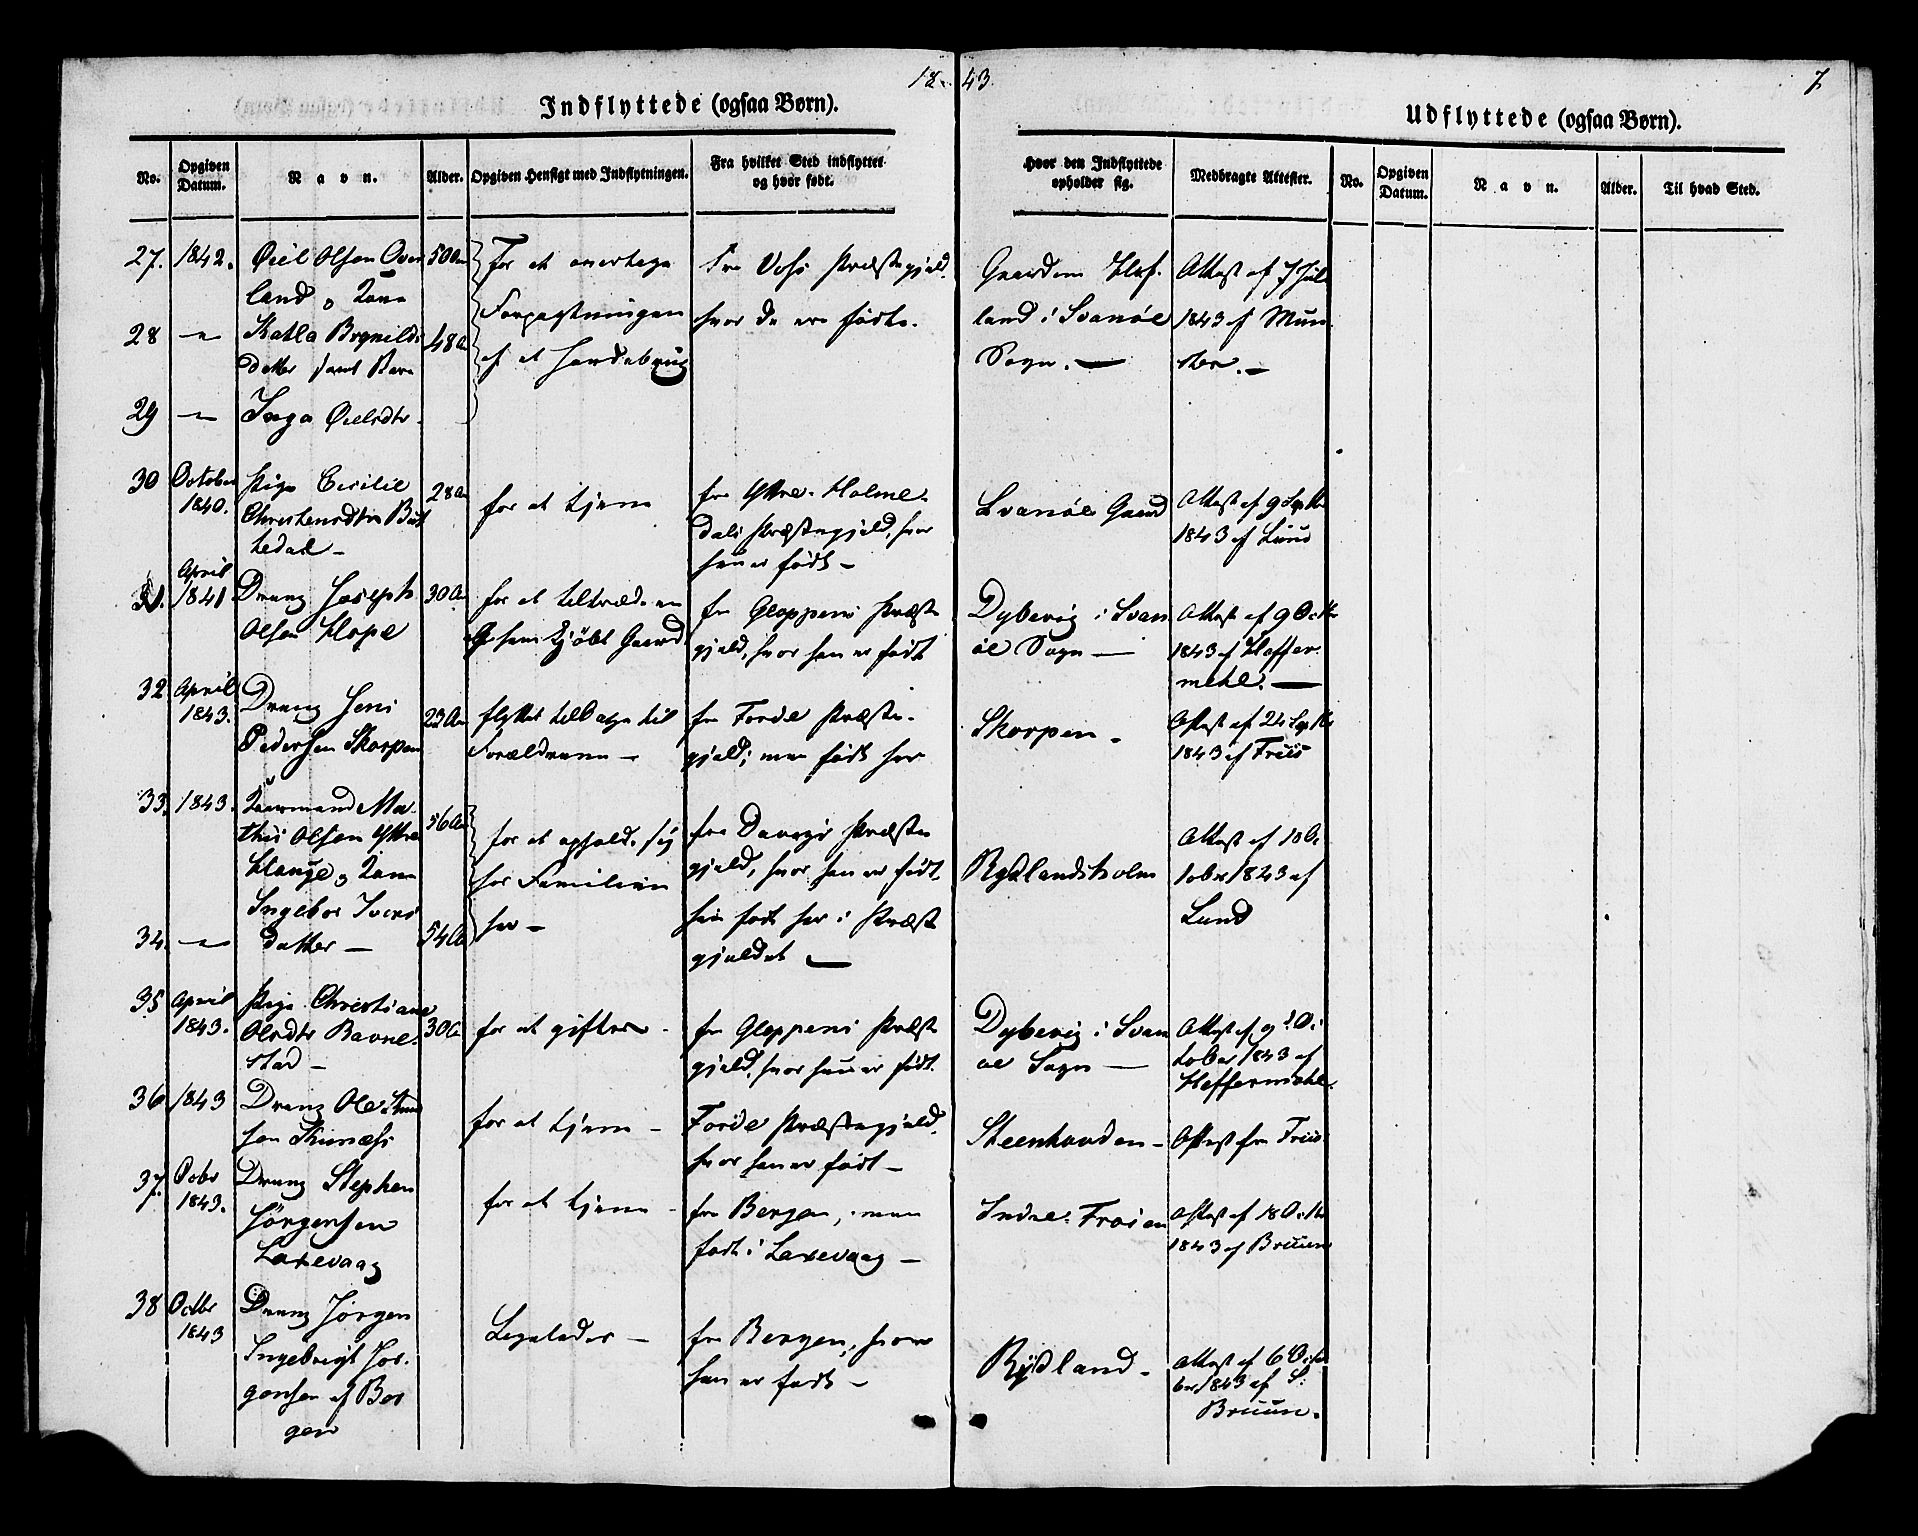 18
43.
7.
Indflyttede (ogsaa Børn).
Udflyttede (ogsaa Børn).
No.
Opgiven Datum.
Navn.
Alder.
Opgiven Hensigt med Indflytningen.
Fra hvilket Sted indflyttet og hvor født.
Hvor den Indflyttede opholder sig.
Medbragte Attester.
No.
Opgiven Datum.
Navn.
Alder.
Til hvad Sted.
27.
1842.
Øiel Olsen Over
land, Kone
50 Aar
For at overtage
Forpagtningen
af et Jordebrug
Fra Voss Præstegjeld,
hvor de ere fødte.
Gaarden Hof
land i Svanøe
Sogn. —
Attest af 7 Juli
1843 af Mun
ster. —
28
Katla Brynilds
datter samt Barn
48 A
29
Inga Øielsdtr
30
October
1840.
Pige Cecilie
Christensdtr
tedal —
28 A
for at tjene
fra Yttre Holme-
dals Præstegjeld, hvor
hun er født —
Svanøe Gaard
Attest af 9 Septbr
1843 af Lund
31.
April
1841
Dreng Joseph
Olsen Hope
30 A
for at tiltræde en
af ham kjøbt Gaard
fra Gloppens Præste
gjeld, hvor han er født
Dybevig i Svan
øe Sogn —
Attest af 9 Octbr
1843 af Heffer
mehl. —
32
April
1843.
Dreng Jens
Pedersen Skorpen
23 Aar
flyttet tilbage til
Forældrene —
fra Førde Præste-
gjeld; men født her
Skorpen —
Attest af 24 Septbr
1843 af Friis
33.
1843.
Kaarmand Ma-
this Olsen Yttre
Hauge, Kone
Ingebor Ivers
56 Aar
for at opholde sig
hos Familien
her —
fra Davigs Præste
gjeld, hvor han er født,
hun født her i Præste
gjeldet —
Rydlandsholm
Attest af 10 Oc
tober 1843 af
Lund
34.
datter —
54 A
35
April
1843.
Pige Christiane
Olsdtr Ravne-
stad —
30 A
for at giftes —
fra Gloppens Præste
gjeld, hvor hun er født.
Dybevig i Svan
øe Sogn —
Attest af 9d Oc
tober 1843 af
Heffermehl.
36
1843
Dreng Ole
sen
for at tjene —
Førde Præstegjeld,
hvor han er født —
Steenhovden —
Attest fra Friis
37.
Octbr
1843.
Dreng Stephen
Jørgensen
Laxevaag
for at tjene —
fra Bergen, men
født i Laxevaag —
Indre Frøien
Attest af 18 Octbr
1843 af Bruun
38
Octbr
1843
Dreng Jørgen
Ingebrigt Jør-
gensen af Ber
gen
Legeleder —
fra Bergen, hvor
han er født —
Rydland —
Attest af 6 Octo
ber 1843 af S:
Bruun.